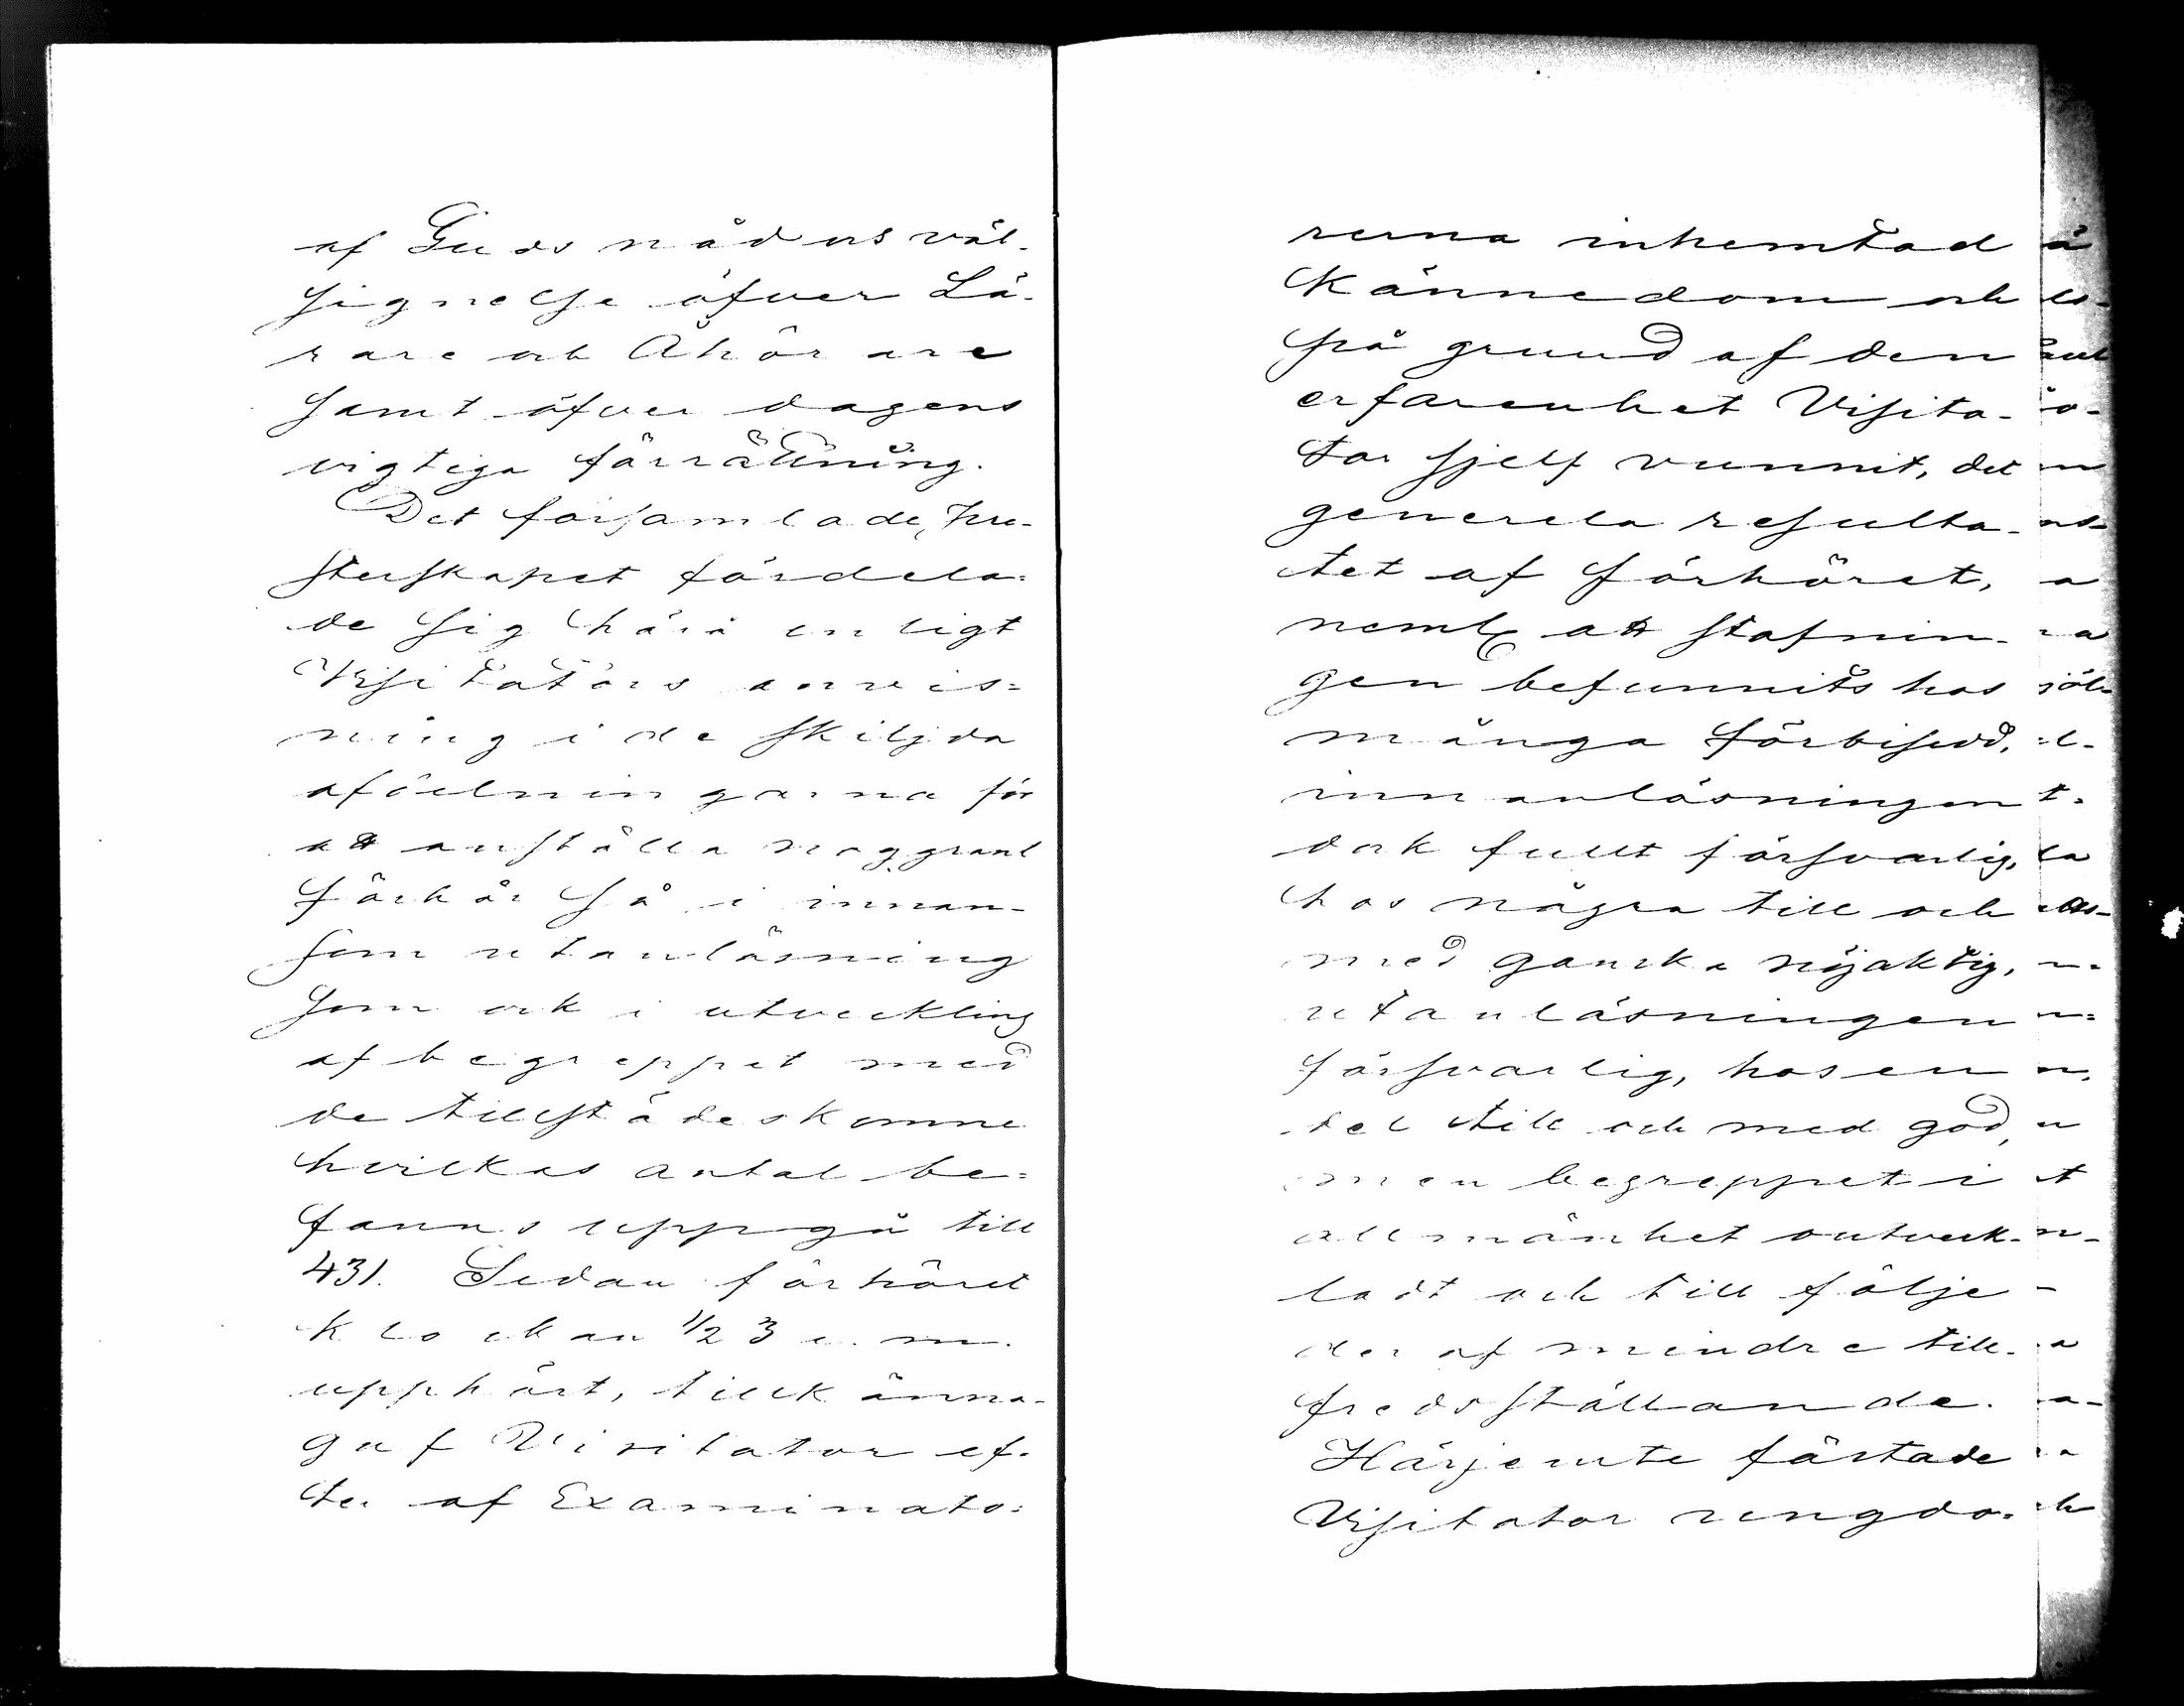 af Guds nådes väl-
signelse öfver Lä-
rare och Åhörare
samt öfver dagens
vigtiga förrättning.
Det församlade Pre-
sterskapet fördela-
de sig härå enligt
Visitators anvis-
ning i de skiljda
afdelningarna för
att anställa noggrant
förhör så i innan-
som utanläsning
som ock i utveckling
af begreppet med
de tillstädeskomne
hvilkas antal be-
fanns uppgå till
431. Sedan förhöret
klockan 1/2 3 e. m.
upphört, tillkänna-
gaf Visitator ef-
ter af Examinato-
rerna inhemtad
kännedom och
på grund af den
erfarenhet Visita-
tor sjelf vunnit, det
generela resulta-
tet af förhöret,
neml. att stafnin-
gen befunnits hos
många förbisedd,
innanläsningen
dock fullt försvarlig,
hos några till och
med ganska nöjaktig,
utanläsningen
försvarlig, hos en
del till och med god,
men begreppet i
allmänhet outveck-
ladt och till följe
deraf mindre till-
fredsställande.
Härjemte fästade
Visitator ungdo-